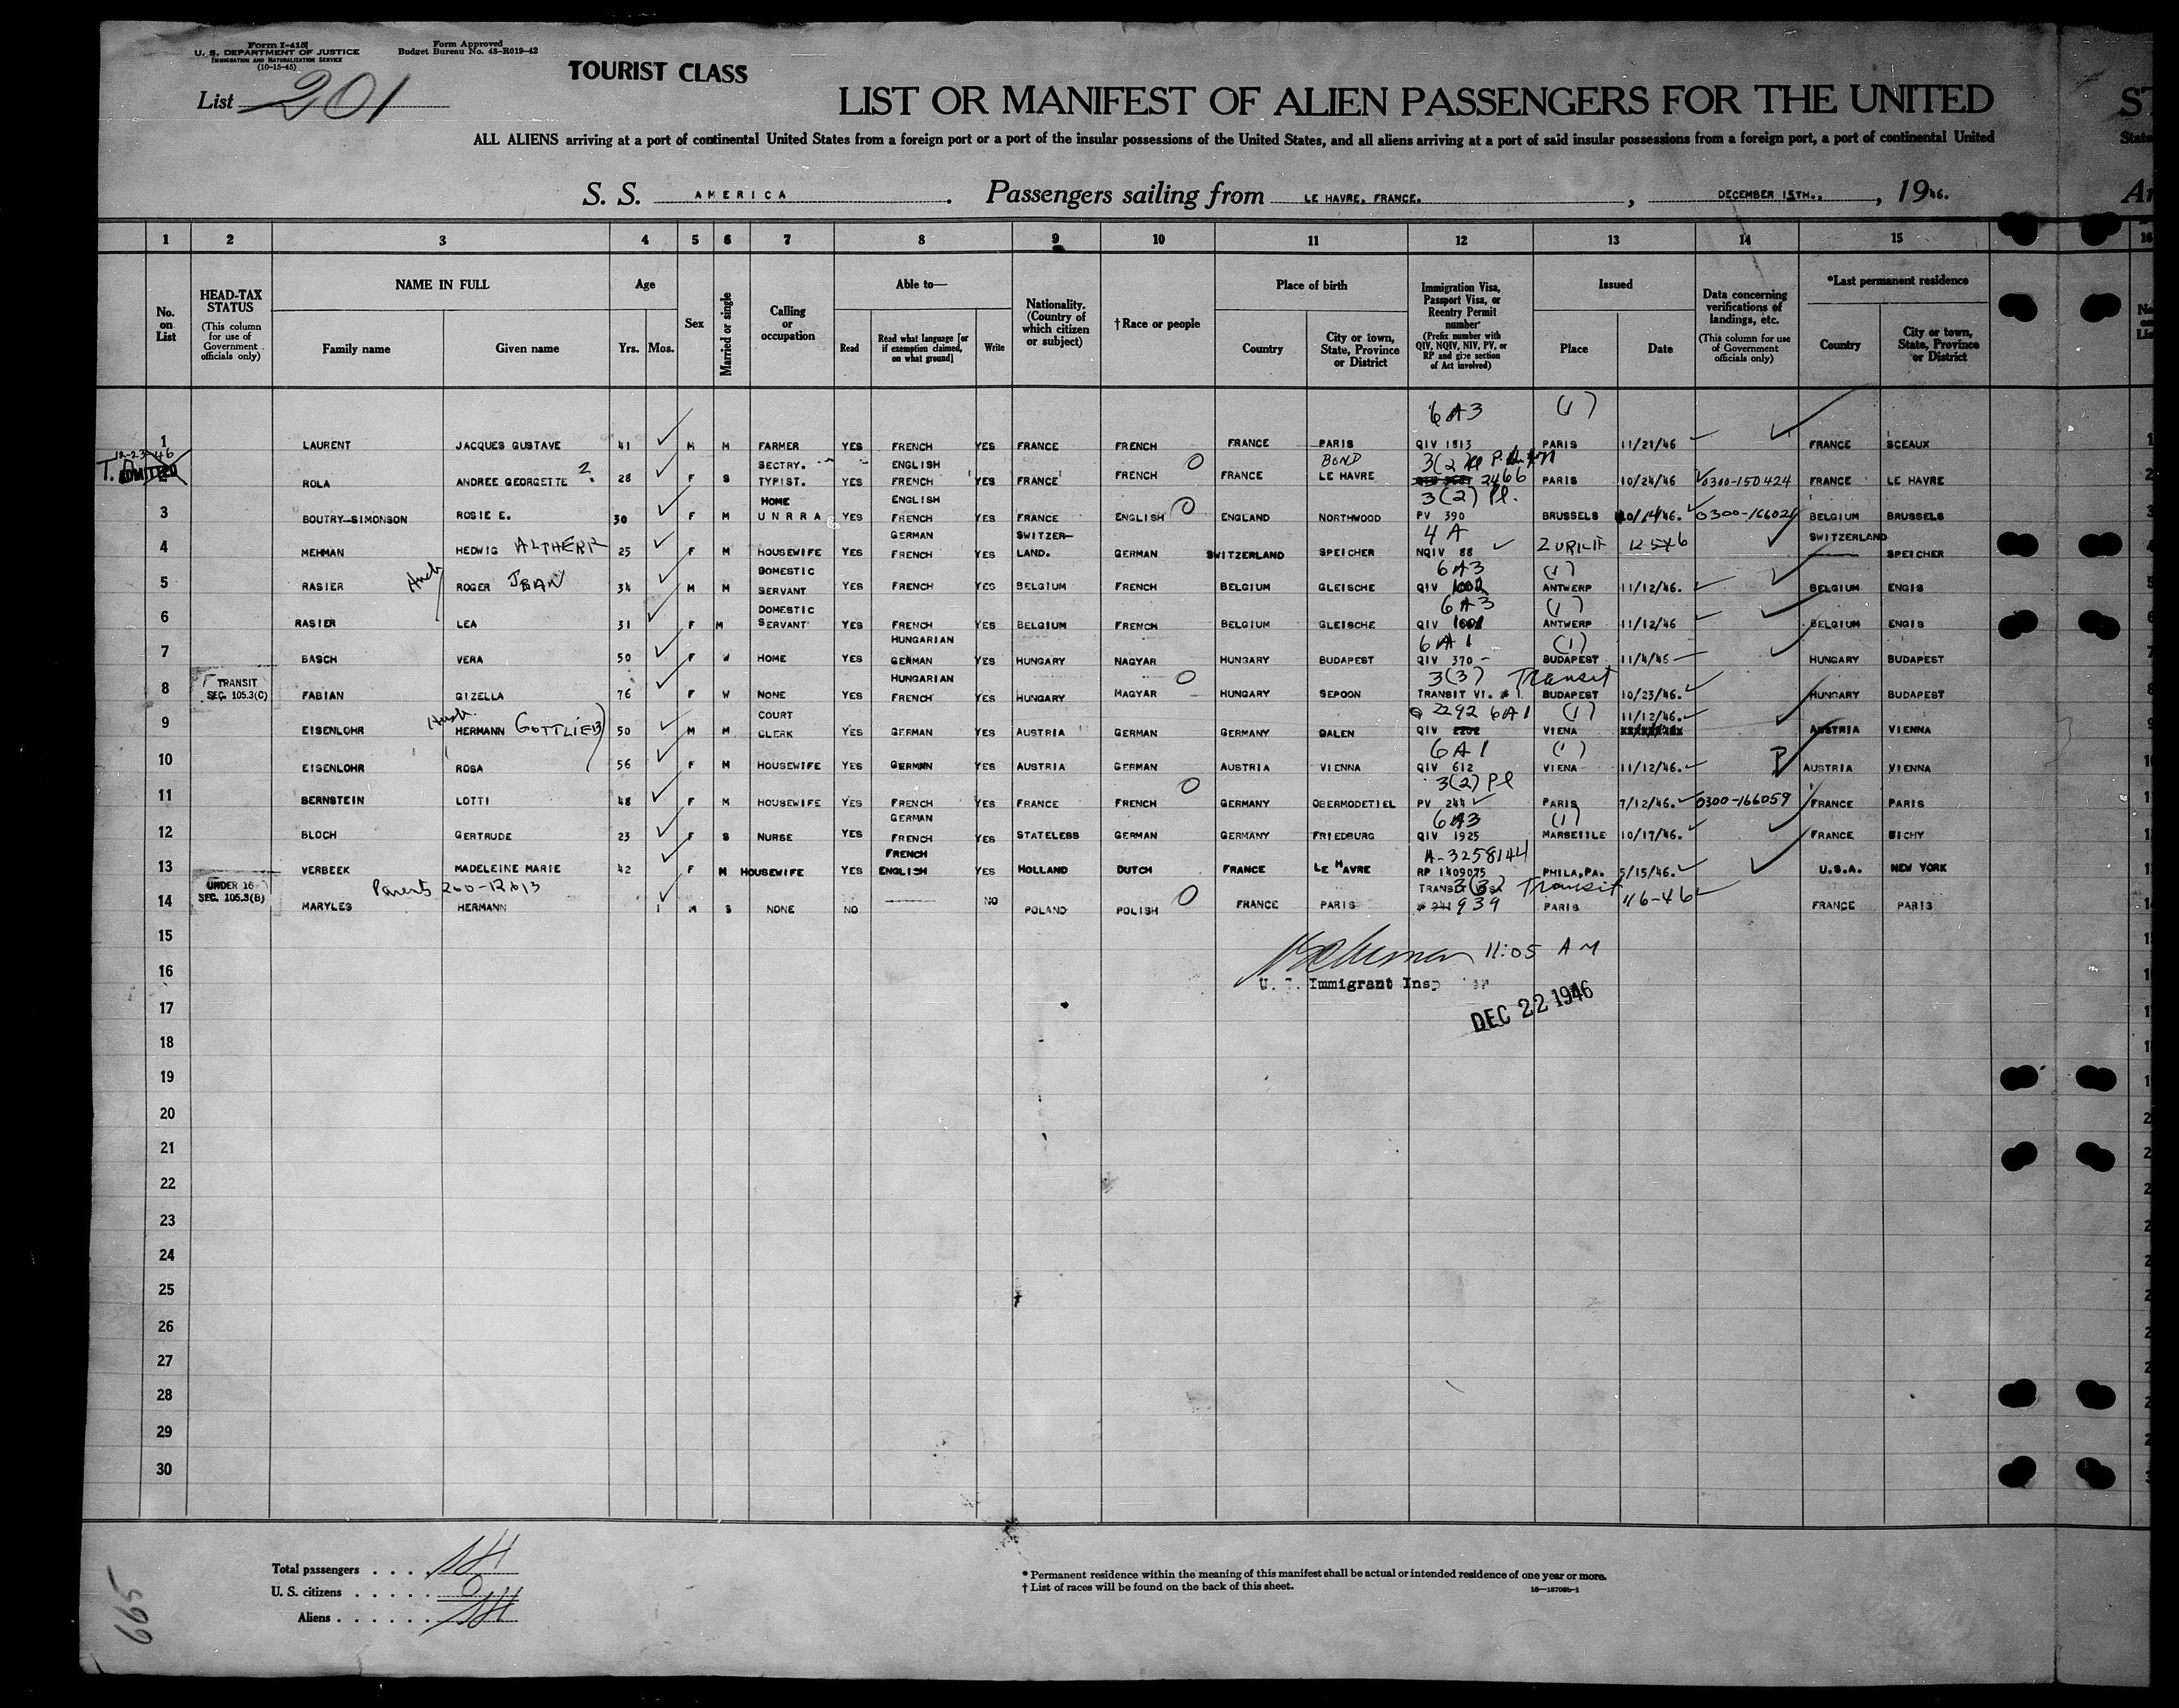 Form I-415
U. S. DEPARTMENT OF JUSTICE
IMMIGRATION AND NATURALIZATION SERVICE
(10-15-45)
Form Approved
Budget Bureau No. 43-R019-42
TOURIST CLASS
List 201
LIST OR MANIFEST OF ALIEN PASSENGERS FOR THE UNITED ST
ALL ALIENS arriving at a port of continental United States from a foreign port or a port of the insular possessions of the United States, and all aliens arriving at a port of said insular possessions from a foreign port, a port of continental United State
S. S. AMERICA. Passengers sailing from LE HAVRE, FRANCE., DECEMBER 15TH., 1946.
1 2 3 4 5 6 7 8 9 10 11 12 13 14 15 16
No. on List
HEAD-TAX STATUS (This column for use of Government officials only)
NAME IN FULL Family name Given name
Age Yrs. Mos.
Sex
Married or single
Calling or occupation
Able to— Read Read what language [or if exemption claimed, on what ground] Write
Nationality. (Country of which citizen or subject)
†Race or people
Place of birth Country City or town, State, Province or District
Immigration Visa, Passport Visa, or Reentry Permit number (Prefix number with QIV, NQIV, NIV, PV, or RP and give section of Act involved)
Issued Place Date
Data concerning verifications of landings, etc. (This column for use of Government officials only)
*Last permanent residence Country City or town, State, Province or District
6A3 (1)
1 LAURENT JACQUES GUSTAVE 41 M M FARMER YES FRENCH YES FRANCE FRENCH FRANCE PARIS QIV 1813 PARIS 11/21/46 FRANCE SCEAUX
12-23-46 SECTRY. ENGLISH BOND 3(2)
ADMITTED ROLA ANDREE GEORGETTE ? 28 F S TYPIST. YES FRENCH YES FRANCE FRENCH FRANCE LE HAVRE 2466 PARIS 10/24/46 0300-150424 FRANCE LE HAVRE
HOME ENGLISH 3(2) Pl.
3 BOUTRY-SIMONSON ROSIE E. 30 F M UNRRA YES FRENCH YES FRANCE ENGLISH ENGLAND NORTHWOOD PV 390 BRUSSELS 10/14/46. BELGIUM BRUSSELS
GERMAN SWITZER- 4A SWITZERLAND
4 MEHMAN HEDWIG ALTHERR 25 F M HOUSEWIFE YES FRENCH YES LAND. GERMAN SWITZERLAND SPEICHER NQIV 88 ZURICH SPEICHER
DOMESTIC 6A3 (1)
5 RASIER ROGER JEAN 34 M M SERVANT YES FRENCH YES BELGIUM FRENCH BELGIUM GLEISCHE QIV 1002 ANTWERP 11/12/46. BELGIUM ENGIS
DOMESTIC 6A3 (1)
6 RASIER LEA 31 F M SERVANT YES FRENCH YES BELGIUM FRENCH BELGIUM GLEISCHE QIV 1001 ANTWERP 11/12/46 BELGIUM ENGIS
HUNGARIAN 6A1 (1)
7 BASCH VERA 50 F W HOME YES GERMAN YES HUNGARY NAGYAR HUNGARY BUDAPEST QIV 370 BUDAPEST 11/4/46 HUNGARY BUDAPEST
TRANSIT HUNGARIAN 3(3) Transit
8 SEC. 105.3(C) FABIAN GIZELLA 76 F W NONE YES FRENCH YES HUNGARY MAGYAR HUNGARY SEPOON TRANSIT VI. # 1. BUDAPEST 10/23/46. HUNGARY BUDAPEST
Husb. COURT Q 2292 6A1 (1) 11/12/46.
9 EISENLOHR HERMANN GOTTLIEB 50 M M CLERK YES GERMAN YES AUSTRIA GERMAN GERMANY DALEN QIV VIENA AUSTRIA VIENNA
6A1 (1)
10 EISENLOHR ROSA 56 F M HOUSEWIFE YES GERMNN YES AUSTRIA GERMAN AUSTRIA VIENNA QIV 612 VIENA 11/12/46. AUSTRIA VIENNA
3(2) Pl
11 BERNSTEIN LOTTI 48 F M HOUSEWIFE YES FRENCH YES FRANCE FRENCH GERMANY OBERMODETIEL PV 244 PARIS 7/12/46. 0300-166059 FRANCE PARIS
GERMAN 6A3 (1)
12 BLOCH GERTRUDE 23 F S NURSE YES FRENCH YES STATELESS GERMAN GERMANY FRIEDBURG QIV 1925 MARSEILLE 10/17/46. FRANCE BICHY
FRENCH A-3258144
13 VERBEEK MADELEINE MARIE 42 F M HOUSEWIFE YES ENGLISH YES HOLLAND DUTCH FRANCE LE HAVRE RP 1409075 PHILA,PA. 5/15/46. U.S.A. NEW YORK
UNDER 16 Parents 200-12&13 3(3) Transit
14 SEC. 105.3(B) MARYLES HERMANN 1 M S NONE NO NO POLAND POLISH FRANCE PARIS 939 PARIS 116-46 FRANCE PARIS
15
11:05 AM
16
U. S. Immigrant Insp
17
DEC 22 1946
18
19
20
21
22
23
24
25
26
27
28
29
30
Total passengers . . . . 14
U. S. citizens . . . . . 0
Aliens . . . . . . 14
* Permanent residence within the meaning of this manifest shall be actual or intended residence of one year or more.
† List of races will be found on the back of this sheet.
16—18708b-1
665